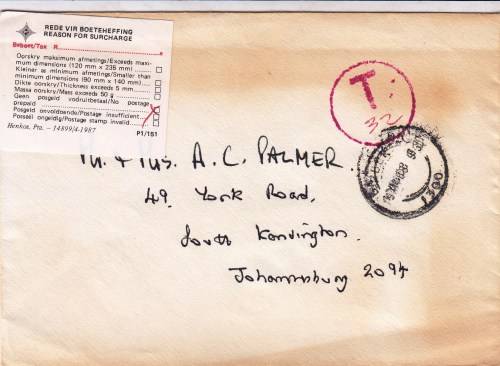 REDE VIR BOETEHEFFING
REASON FOR SURCHARGE
Bedrag/Tax R
Oorskry maksimum afmetings/Exceeds maxi-
mum dimensions (120 mm x 235 mm)
Kleiner as minimum afmetings/Smaller than
minimum dimensions (90 mm x 140 mm)
Dikte oorskry/Thickness exceeds 5 mm
Massa oorskry/Mass exceeds 50 g
Geen posgeld vooruitbetaal/No postage
prepaid
Posgeld onvoldoende/Postage insufficient
Posseël ongeldig/Postage stamp invalid
Henkos, Pta. – 14899/4-1987 P1/181
T:
32
Mr. & Mrs. A. C. PALMER.
49, York Road,
South Kensington.
Johannesburg 2094